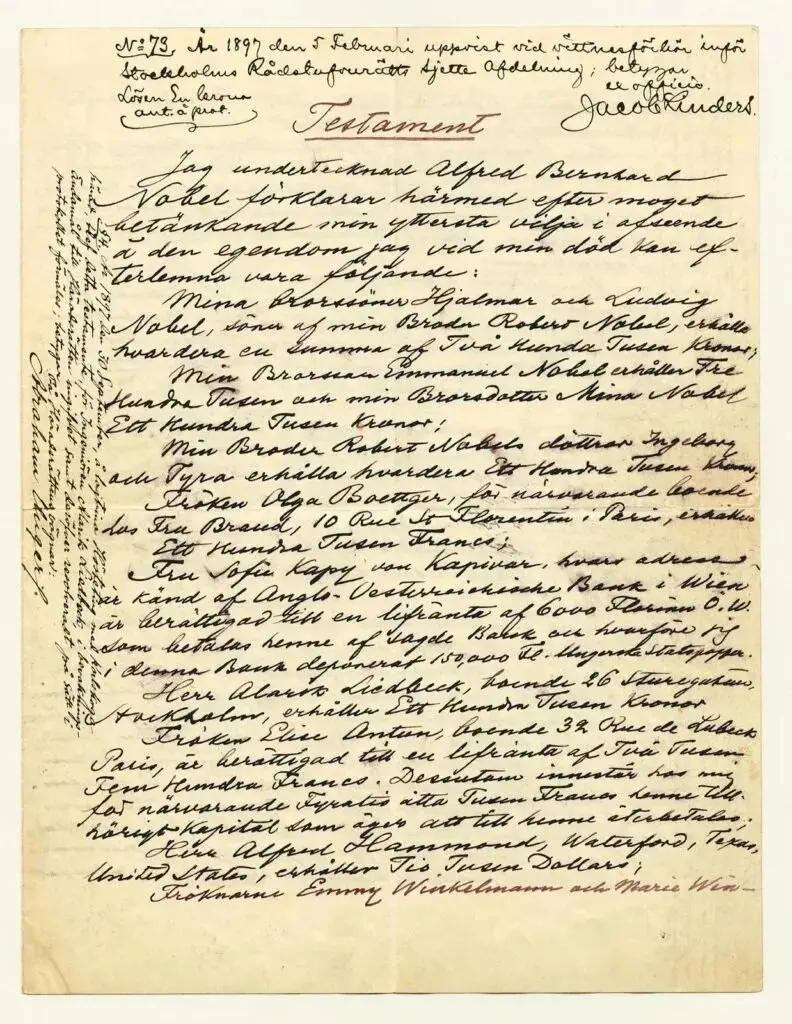 No 73. År 1897 den 5 Februari uppvist vid vittnesförhör inför
Stockholms Rådstufvurätts sjette Afdelning; betygar
ex officio.
Lösen En krona
ant. å prot.
Jacob Kinders.
Testament
Jag undertecknad Alfred Bernhard
Nobel förklarar härmed efter moget
betänkande min yttersta vilja i afseende
å den egendom jag vid min död kan ef-
terlemna vara följande:
Mina brorssöner Hjalmar och Ludvig
Nobel, söner af min Broder Robert Nobel, erhålla
hvardera en summa af Två Hundra Tusen Kronor;
Min Brorsson Emmanuel Nobel erhåller Tre
Hundra Tusen och min Brorsdotter Mina Nobel
Ett Hundra Tusen Kronor;
Min Broder Robert Nobels döttrar Ingeborg
och Tyra erhålla hvardera Ett Hundra Tusen Kronor;
Fröken Olga Boettger, för närvarande boende
hos Fru Brand, 10 Rue St Florentin i Paris, erhåller
Ett Hundra Tusen Francs;
Fru Sofie Kapy von Kapivar, hvars adress
är känd af Anglo-Oesterreichische Bank i Wien
är berättigad till en lifränta af 6000 Florins Ö.W.
som betalas henne af sagde Bank och hvarföre jag
i denna Bank deponerat 150,000 Fl. Ungerska Statspapper.
Herr Alarik Liedbeck, boende 26 Sturegatan,
Stockholm, erhåller Ett Hundra Tusen Kronor
Fröken Elise Antun, boende 32 Rue de Lubeck
Paris, är berättigad till en lifränta af Två Tusen
Fem Hundra Francs. Desutom innestår hos mig
för närvarande Fyratio åtta Tusen Francs henne till-
hörigt Kapital som äger att till henne återbetalas;
Herr Alfred Hammond, Waterford, Texas,
United States, erhåller Tio Tusen Dollars;
Fröknarne Emmy Winkelmann och Marie Win-
År 1897 den
detta testamente
Abraham Unger